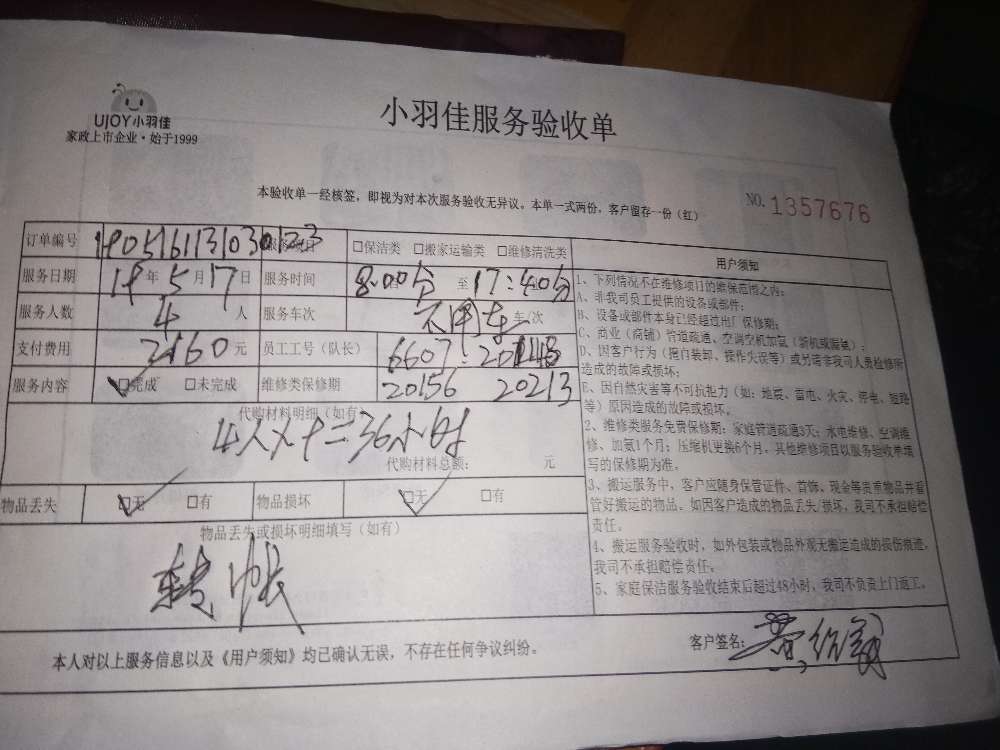 UJOY小羽佳
家政上市企业·始于1999
小羽佳服务验收单
本验收单一经核签，即视为对本次服务验收无异议。本单一式两份，客户留存一份（红）
NO. 1357676
订单编号
□保洁类 □搬家运输类 □维修清洗类
服务日期 19年5月17日 服务时间 8:00分至17:40分
服务人数 4人 服务车次 不用车 车/次
支付费用 元 员工工号（队长） 6607:
服务内容 □完成 □未完成 维修类保修期 20156 20213
代购材料明细（如有）
小时
代购材料总额： 元
物品丢失 □无 □有 物品损坏 □无 □有
物品丢失或损坏明细填写（如有）
转帐
用户须知
1、下列情况不在维修项目的维保范围之内：
A、非我司员工提供的设备或部件；
B、设备或部件本身已经超过出厂保修期；
C、商业（商铺）管道疏通、空调空机加氟（新机或漏氟）；
D、因客户行为（擅自装卸、操作失误等）或另请非我司人员检修所
造成的故障或损坏；
E、因自然灾害等不可抗拒力（如：地震、雷电、火灾、停电、短路
等）原因造成的故障或损坏。
2、维修类服务免费保修期：家庭管道疏通3天；水电维修、空调维
修、加氟1个月；压缩机更换6个月，其他维修项目以服务验收单填
写的保修期为准。
3、搬运服务中，客户应随身保管证件、首饰、现金等贵重物品并看
管好搬运的物品。如因客户造成的物品丢失/损坏，我司不承担赔偿
责任。
4、搬运服务验收时，如外包装或物品外观无搬运造成的损伤痕迹，
我司不承担赔偿责任。
5、家庭保洁服务验收结束后超过48小时，我司不负责上门返工。
本人对以上服务信息以及《用户须知》均已确认无误，不存在任何争议纠纷。
客户签名：